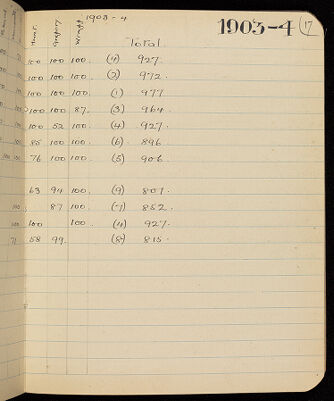 1903-4
1903-4 17
Total
100 100 100. (4) 927.
100 100 100. (2) 972.
100 100 100. (1) 977
100 100 87. (3) 964.
100 52 100. (4) 927.
85 100 100. (6) 896
100 76 100 100. (5) 906.
63 94 100. (9) 801.
100 87 100. (7) 852.
100 100 100.. (4) 927.
71 58 99. (8) 815.